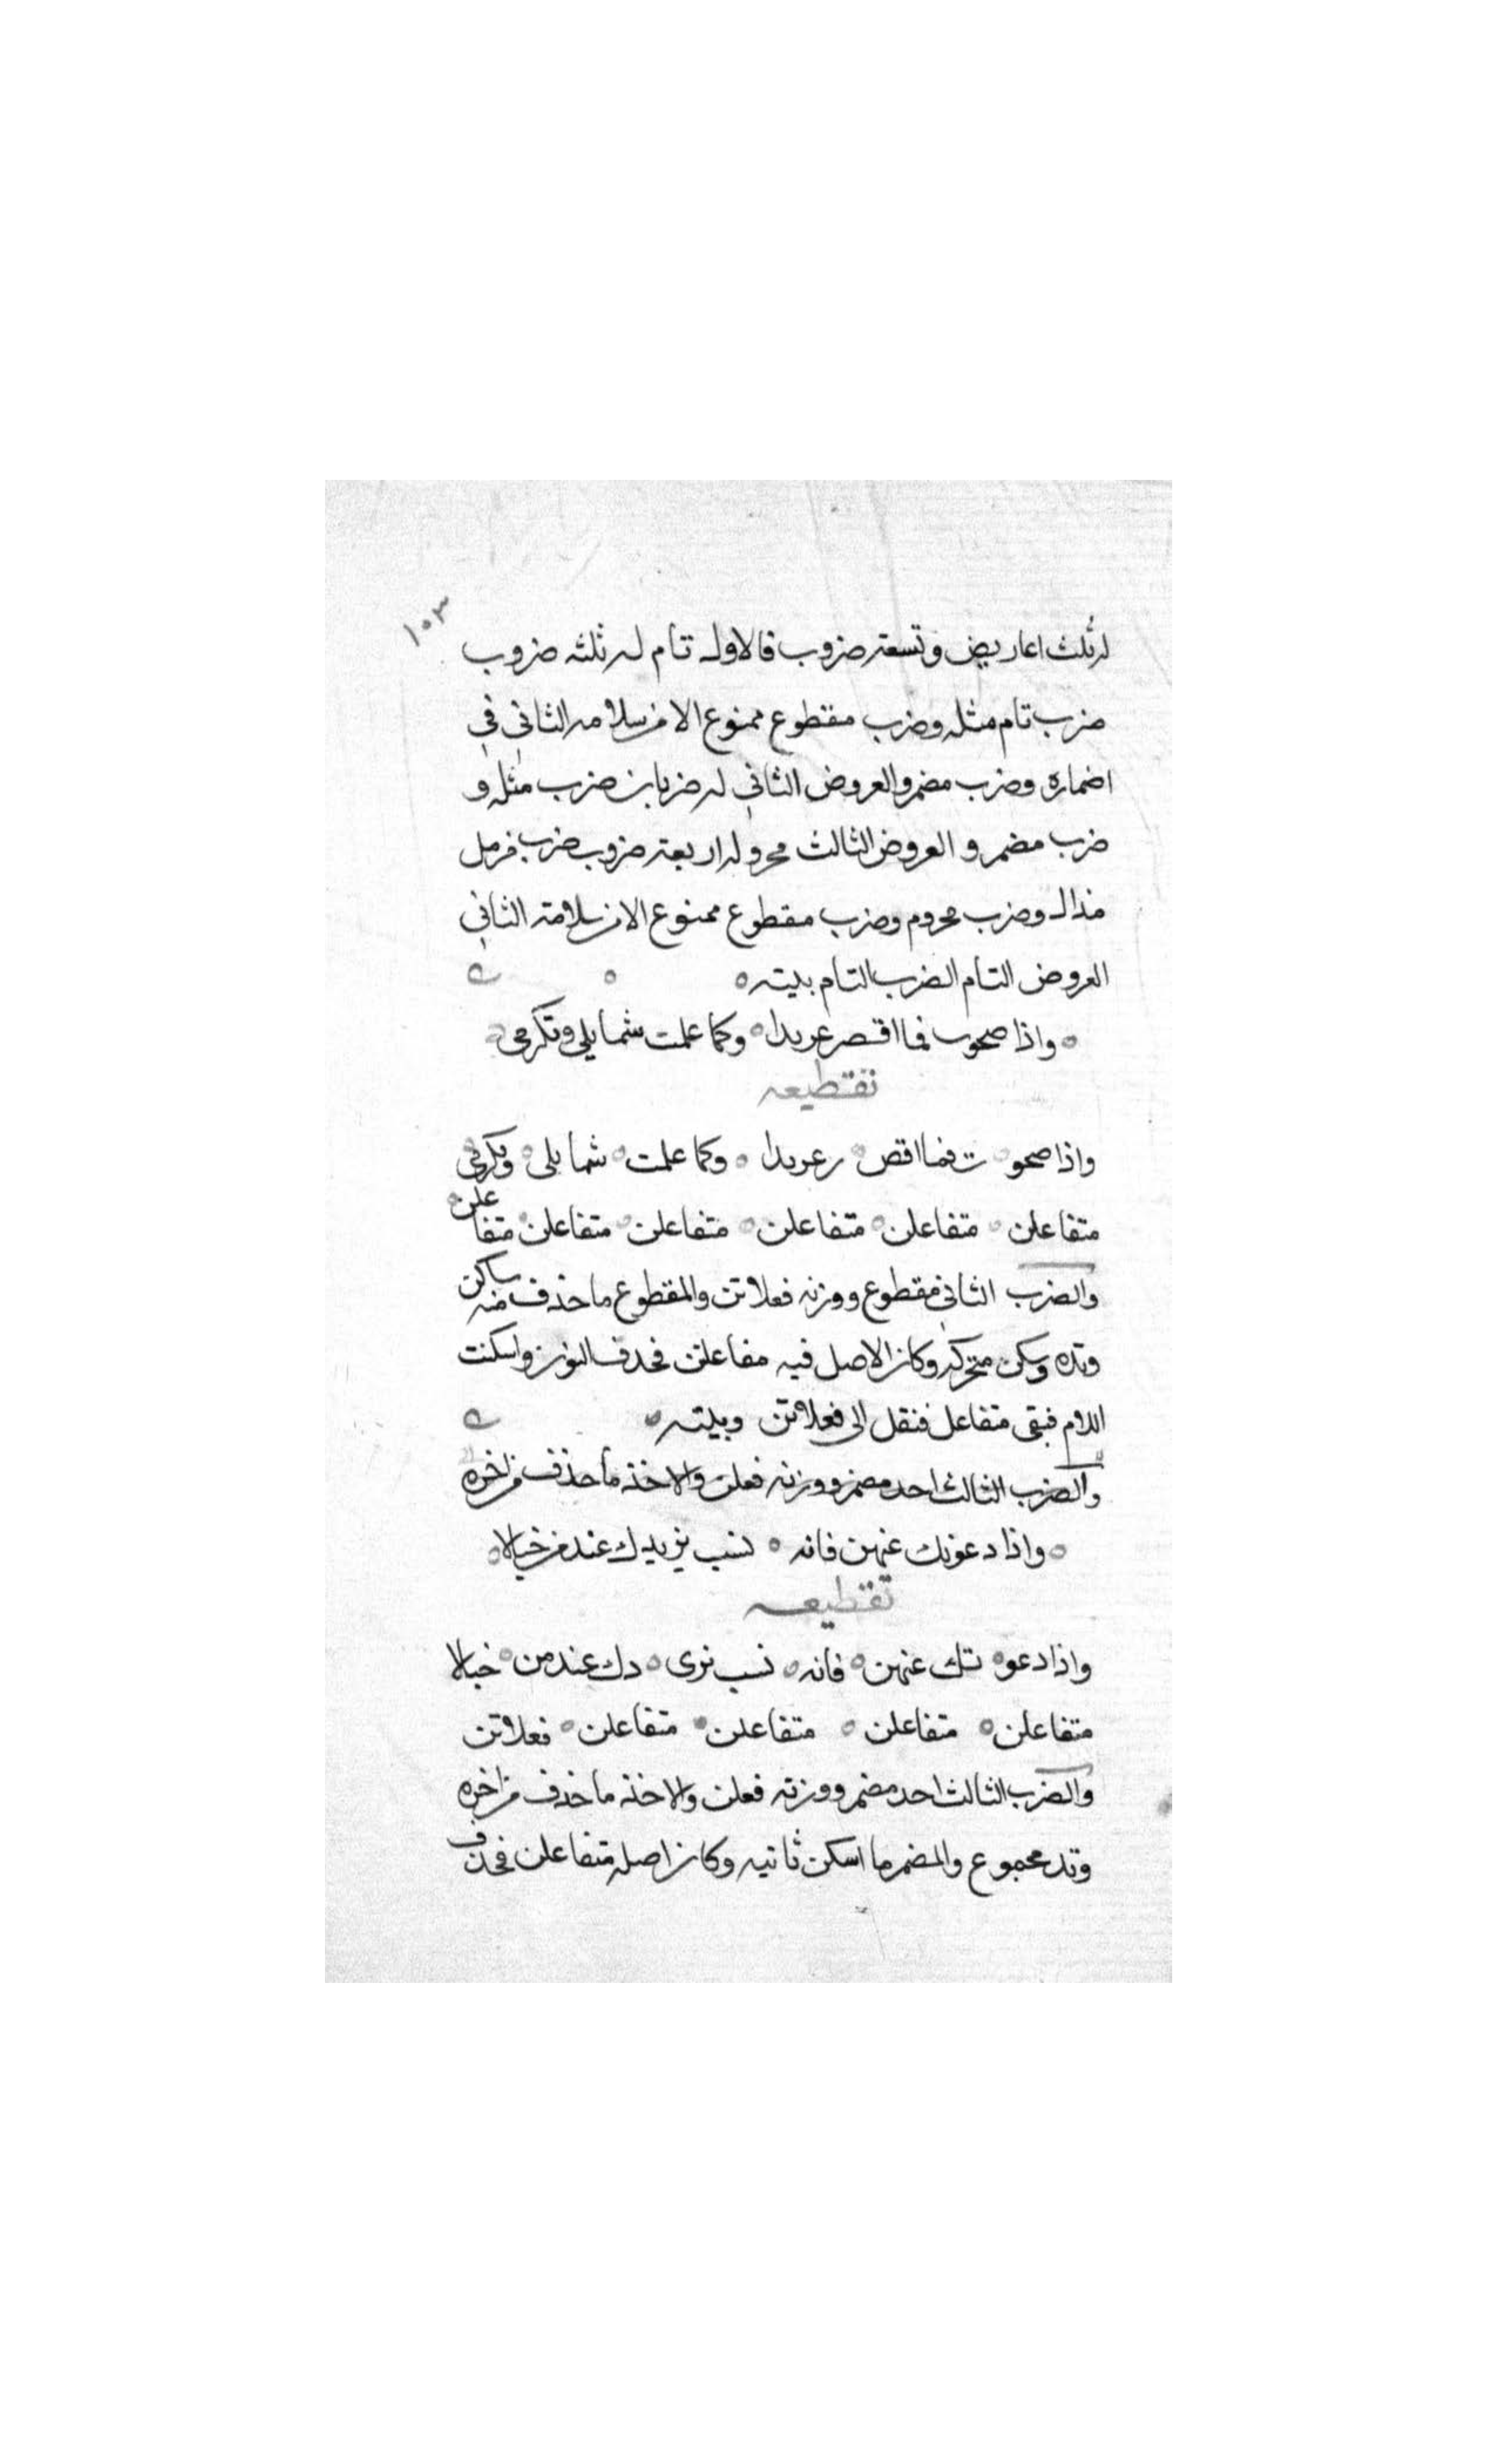 ١٠٣
له ثلث اعاريض وتسعة ضروب فالاول تام له ثلثه ضروب
ضرب تام مثله وضرب مقطوع ممنوع الا من سلامه الثاني في
اضماره وضرب مضمر والعروض الثاني له ضربان ضرب مثله و
ضرب مضمر و العروض الثالث مجزو له اربعة ضروب ضرب مرفل
مذال وضرب مجزوم وضرب مقطوع ممنوع الا من سلامة الثاني
العروض التام الضرب التام بيته
واذا صحوت فما اقصر عن ندا وكما علمت شمايلي وتكرمي
تقطيعه
واذا صحو ت فما اقص ر عن ندا وكما علمت شمايلي وتكرمي
متفاعلن متفاعلن متفاعلن متفاعلن متفاعلن متفاعلن
والضرب الثاني مقطوع ووزنه فعلاتن والمقطوع ما حذف منه ساكن
وتده وسكن متحركه وكان الاصل فيه متفاعلن فحذف النون واسكنت
اللام فبقى متفاعل فنقل الى فعلاتن وبيته
والضرب الثالث احد مضمر ووزنه فعلن والاخذ ما حذف من اخره
واذا دعونك عمهن فانه نسب يزيدك عندهن خبالا
تقطيعه
واذا دعو نك عمهن فانه نسب يزى دك عندهن خبالا
متفاعلن متفاعلن متفاعلن متفاعلن فعلاتن
والضرب الثالث احد مضمر ووزنه فعلن والاخذ ما حذف من اخره
وتد مجموع والمضمر ما اسكن ثانيه وكان اصله متفاعلن فحذف